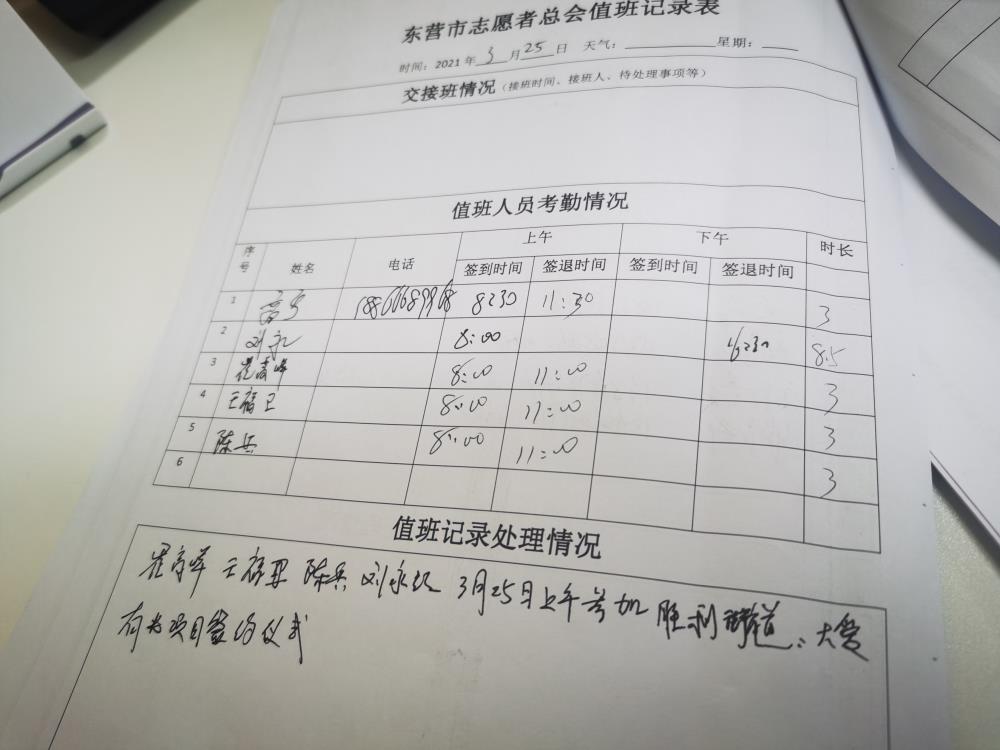 东营市志愿者总会值班记录表
时间：2021年 3 月 25 日 天气： 星期：
交接班情况（接班时间、接班人、待处理事项等）
值班人员考勤情况
序号 姓名 电话 上午 下午 时长
签到时间 签退时间 签到时间 签退时间
1 8:30 11:30 3
2 刘永 8:00 8.5
3 崔高峰 8:00 11:00 3
4 王福卫 8:00 11:00 3
5 陈兵 8:00 11:00 3
6
值班记录处理情况
崔高峰 王福卫 陈兵 刘永 3月25日上午参加 胜利街道：大爱
有为项目签约仪式